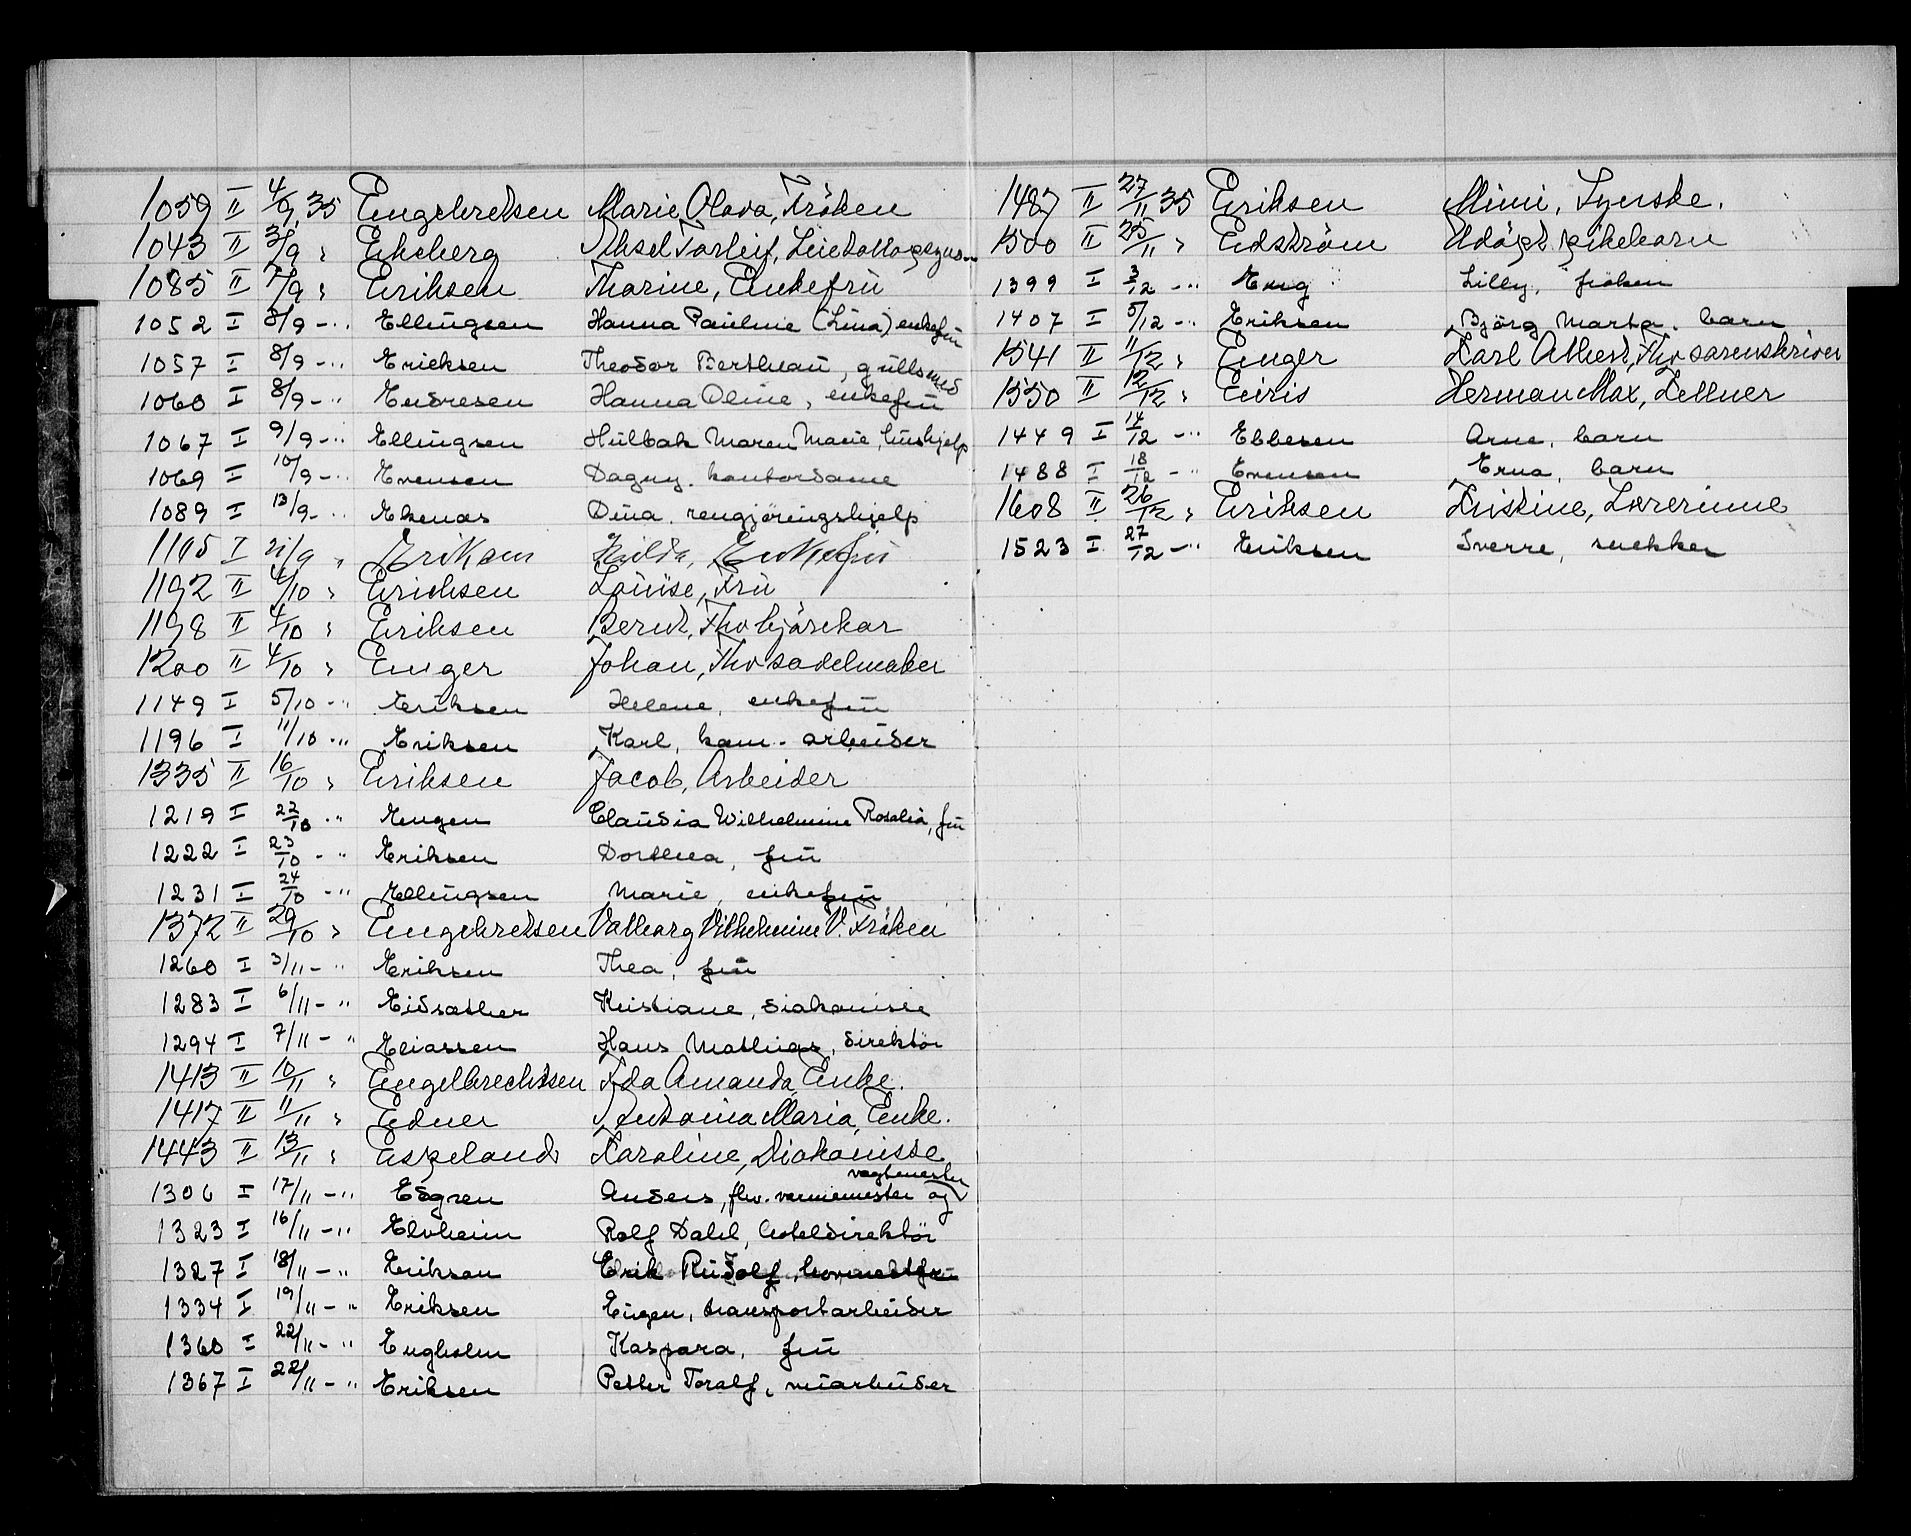 1059 II 4/9 35 Engebretsen Marie Olava, Fröken
1043 II 3/9 " Ekeberg Aksel Torleif,
1085 II 7/9 " Eriksen Thorine, Enkefru
1052 I 8/9 - " Ellingsen Hanna Pauline (Lina) enkefru
1057 I 8/9 - " Ericksen Theodor Bertheau, gullsmed
1060 I 8/9 - " Endresen Hanna Oline, enkefru
1067 I 9/9 - " Ellingsen Hulbak Maren Marie, hushjelp
1069 I 10/9 - " Evensen Dagny, kontordame
1089 I 13/9 - " Ekenas Dina, rengjöringshjelp
1105 I 21/9 " Eriksen Hilda, Enkefru
1192 II 4/10 " Erichsen Louise, Fru
1198 II 4/10 " Eriksen Bernt, Fhv kjörekar
1200 II 4/10 " Enger Johan, Fhv sadelmaker
1149 I 5/10 - " Eriksen Helene, enkefru
1196 I 11/10 - " Eriksen Karl, kom. arbeider
1335 II 16/10 " Eriksen Jacob, Arbeider
1219 I 22/10 - " Engen Claudia Wilhelmine Rosalia, fru
1222 I 23/10 - " Eriksen Dorthea, fru
1231 I 24/10 - " Ellingsen Marie, enkefru
1372 II 29/10 " Engebretsen Valborg Vilhelmine V. Fröken
1260 I 3/11 - " Eriksen Thea, fru
1283 I 6/11 - " Eidsæther Kristiane, diakonisse
1294 I 7/11 - " Eliassen Hans Mathias, direktör
1413 II 10/11 " Engelbrechtsen Ida Amanda, Enke.
1417 II 11/11 " Edner Antonia Maria, Enke.
1443 II 13/11 " Espeland Karoline, Diakonisse
vægtmester
1306 I 17/11 - " Edgren Anders, fhv. vernemester og
1323 I 16/11 - " Elvheim Rolf Dahl, hoteldirektör
1327 I 18/11 - " Erikson Erik Rudolf,
1334 I 19/11 - " Eriksen Eugen, transportarbeider
1360 I 22/11 - " Engholm Kaspara, fru
1367 I 22/11 - " Eriksen Petter Toralf, murarbeider
1487 II 27/11 35 Eriksen Mimi, Syerske.
1500 II 25/11 " Edström Udöpt pikebarn
1399 I 3/12 - " Eng Lilly, fröken
1407 I 5/12 - " Eriksen Björg Marta, barn
1541 II 11/12 " Enger Karl Albert, Fhv sorenskriver
1550 II 12/12 " Eiris Herman Max, Kellner
1449 I 14/12 - " Ebbesen Arne, barn
1488 I 18/12 - " Evensen Erna, barn
1608 II 26/12 " Eriksen Kristine, Lærerinne
1523 I 27/12 - " Eriksen Sverre, snekker